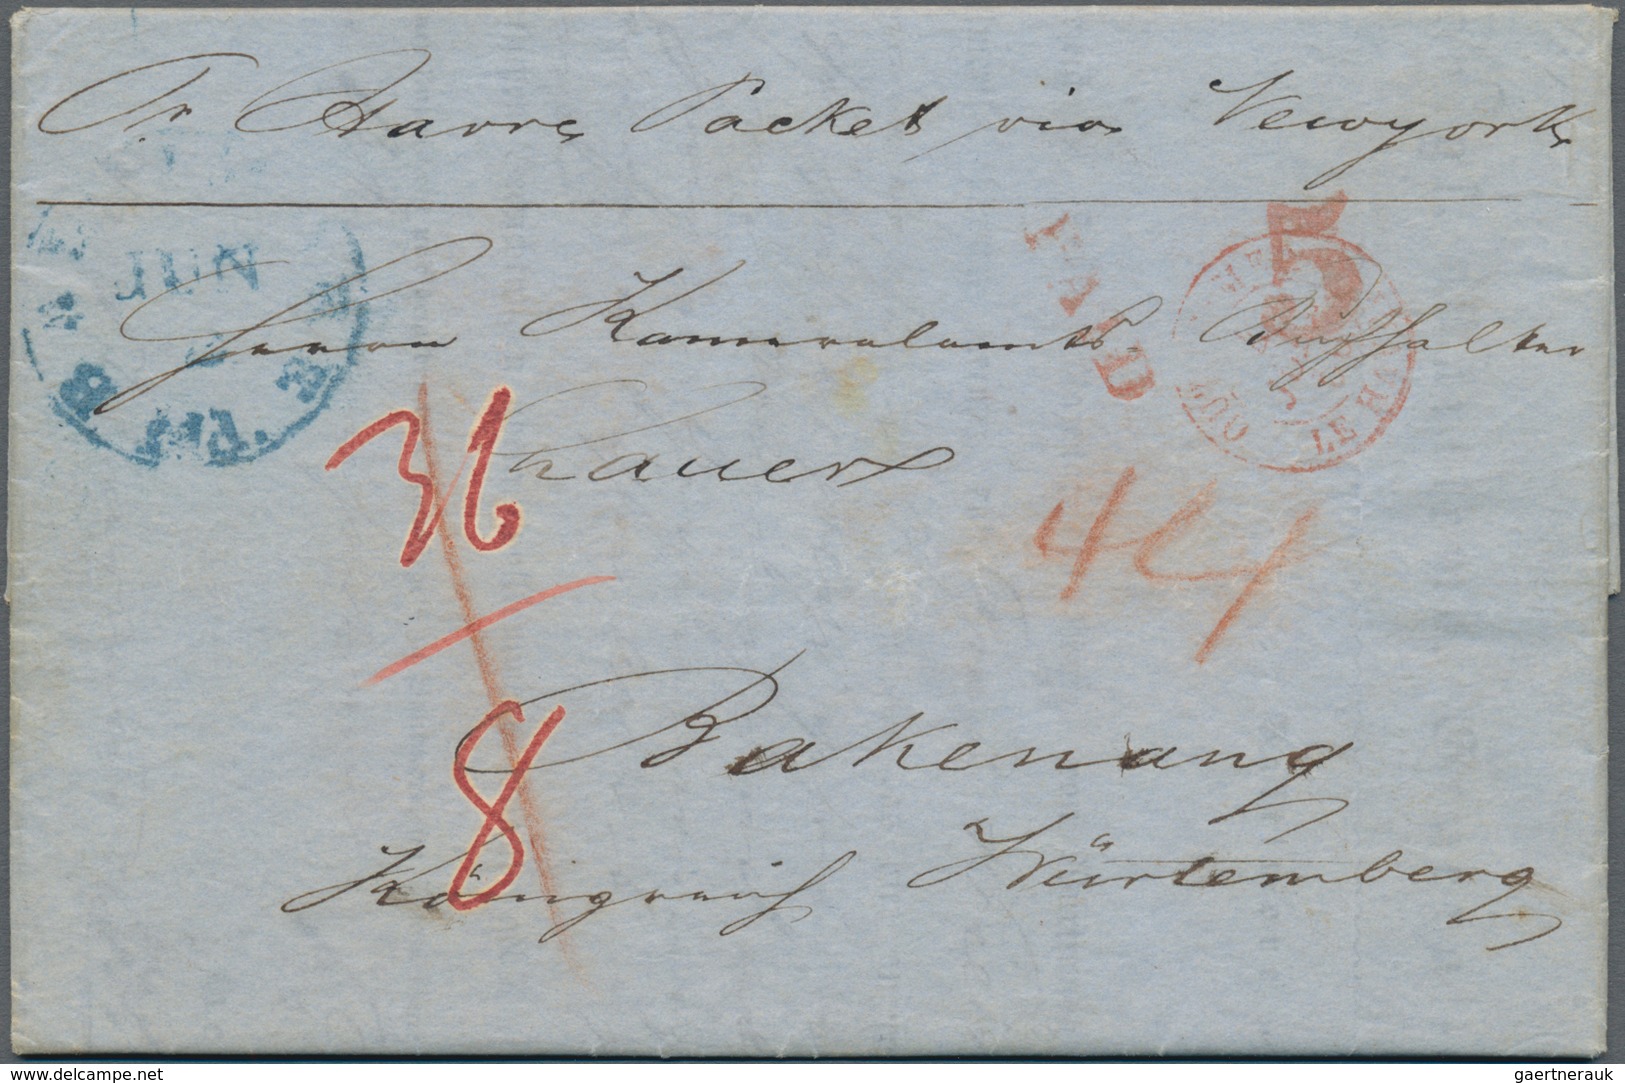 Pr. Havre Packet via Newyork
JUN
MD.
PAID
5
OUTRE-MER
LE HAVRE
Herrn Kameralamts-Buchhalter
Lauer
36
44
8
Bakenang
Königreich Würtemberg
www.delcampe.net
gaertnerauk